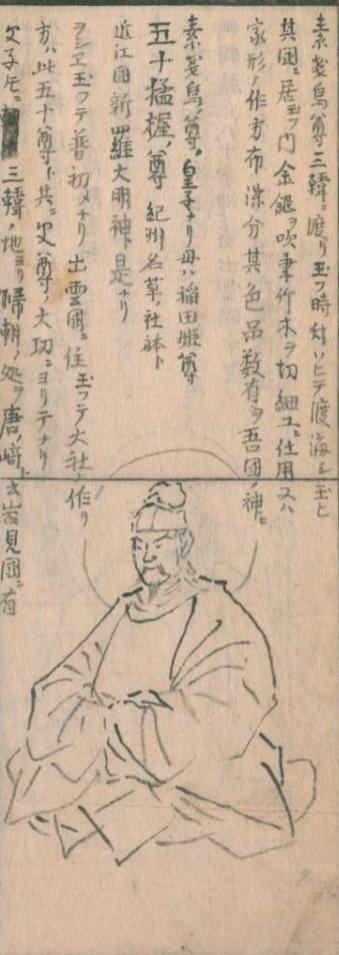 素戔烏尊三韓ニ渡リ玉フ時対ソヒテ渡海シ玉ヒ
其国ニ居玉フ内金銀ヲ吹事竹木ヲ切細工ニ仕用又ハ
家形ノ作方布染分其色品数有ヲ吾国ノ神ニ
素戔烏ノ尊ノ皇子ナリ母ハ稲田姫ノ尊
五十猛握ノ尊 紀州名草ノ社躰ト
近江国新羅大明神ト是ナリ
ヲシヱ玉フテ普初メナリ出雲国ニ住玉フテ大社ノ作リ
方ハ此五十尊ト共ニ父尊ノ大功ニヨリテナリ
父子尼ニ三韓ノ地ヨリ帰朝ノ処ヲ唐ノ崎ト云岩見国ニ有